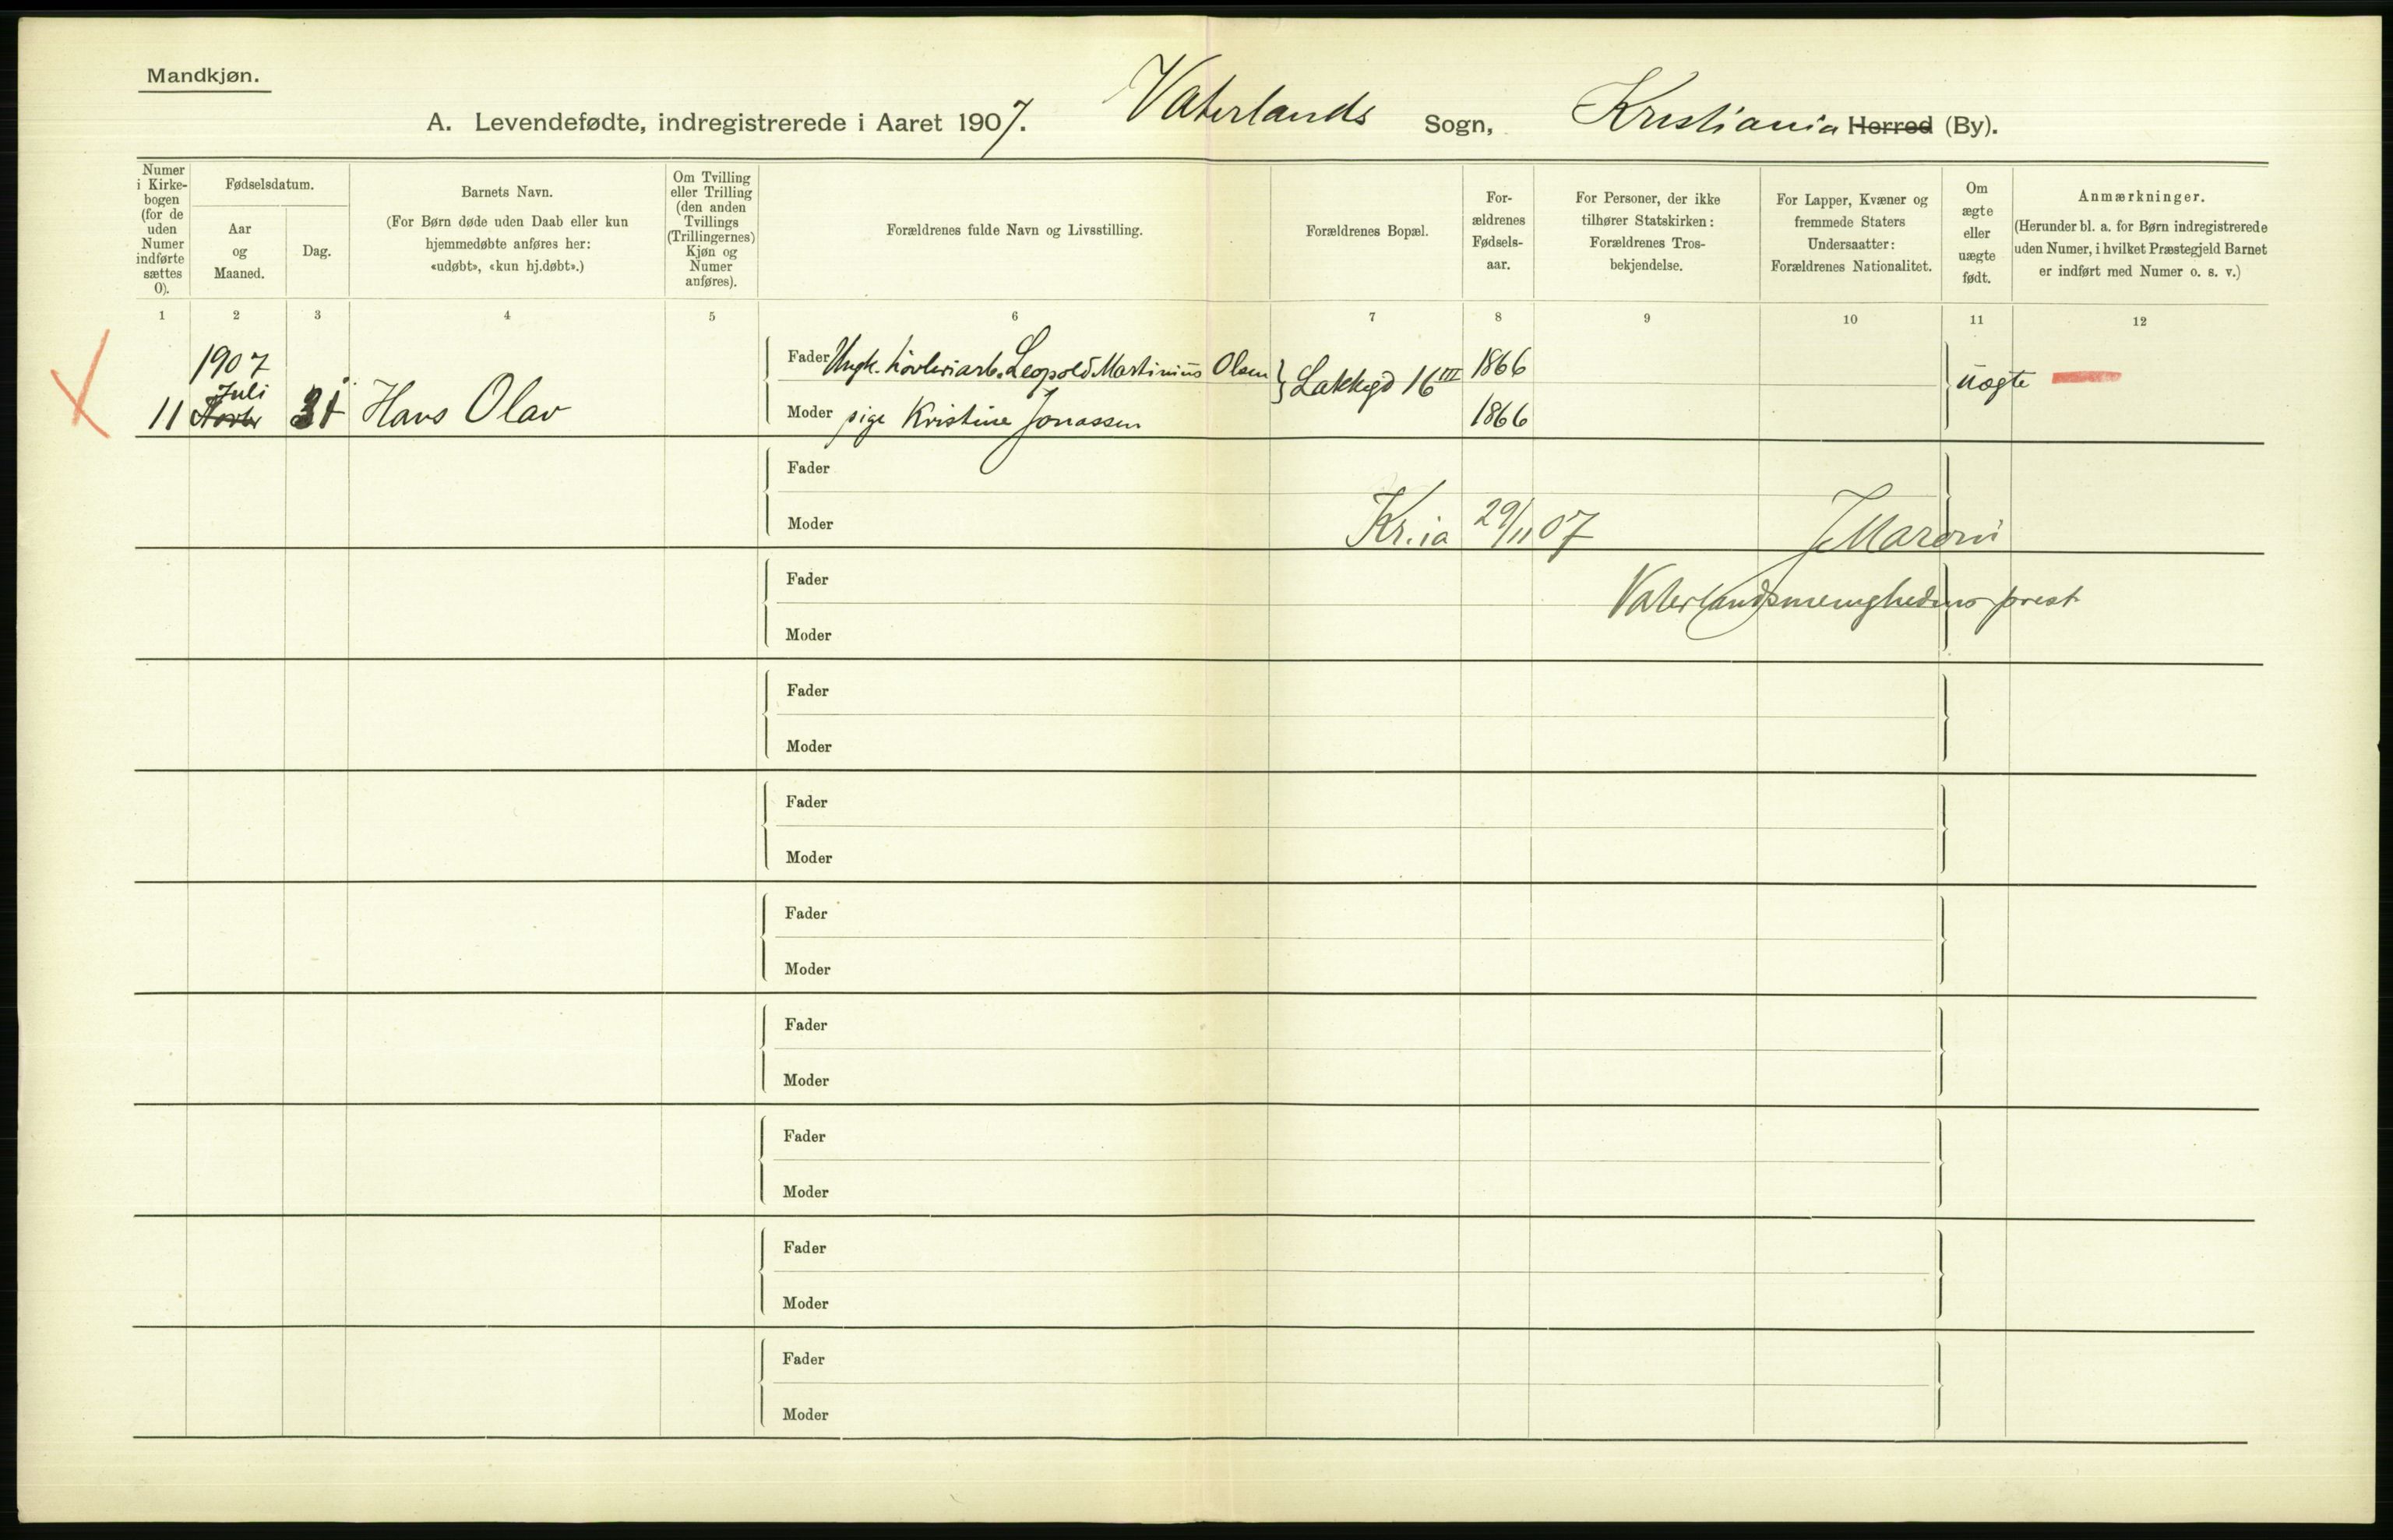 Mandkjøn.
A. Levendefødte, indregistrerede i Aaret 1907. Vaterlands Sogn, Kristiania Herred (By).
Numer i Kirke-bogen (for de uden Numer indførte sættes 0).
Fødselsdatum.
Aar og Maaned.
Dag.
Barnets Navn.
(For Børn døde uden Daab eller kun
hjemmedøbte anføres her:
«udøbt», «kun hj.døbt».)
Om Tvilling
eller Trilling
(den anden
Tvillings
(Trillingernes)
Kjøn og
Numer
anføres).
Forældrenes fulde Navn og Livsstilling.
Forældrenes Bopæl.
For-
ældrenes
Fødsels-
aar.
For Personer, der ikke
tilhører Statskirken:
Forældrenes Tros-
bekjendelse.
For Lapper, Kvæner og
fremmede Staters
Undersaatter:
Forældrenes Nationalitet.
Om
ægte
eller
uægte
født.
Anmærkninger.
(Herunder bl. a. for Børn indregistrerede
uden Numer, i hvilket Præstegjeld Barnet
er indført med Numer o. s. v.)
1 2 3 4 5 6 7 8 9 10 11 12
1907
Juli
11 31 Hans Olav
Fader Ungk. høvleriarb. Leopold Martinius Olsen Lakkegd 16 III 1866 uægte
Moder pige Kristine Jonassen 1866
Fader
Moder Kr.ia 29/11 07 J Maroni
Fader Vaterlandsmenighedens prest
Moder
Fader
Moder
Fader
Moder
Fader
Moder
Fader
Moder
Fader
Moder
Fader
Moder
Fader
Moder